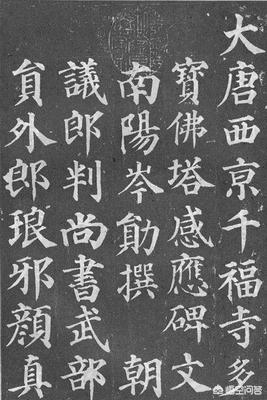 大唐西亰千福寺多
寶佛塔感應碑文
南陽岑勛撰　朝
議郎判尚書武部
貟外郎琅邪顏真
悟空问答